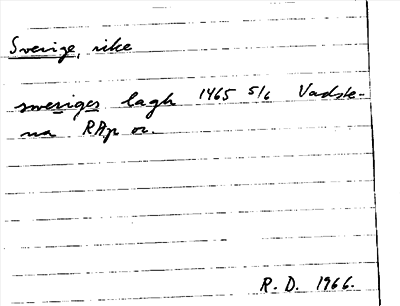 Sverige, rike
sweriges lagh 1465 5/6 Vadste-
na RAp or.
R. D. 1966.